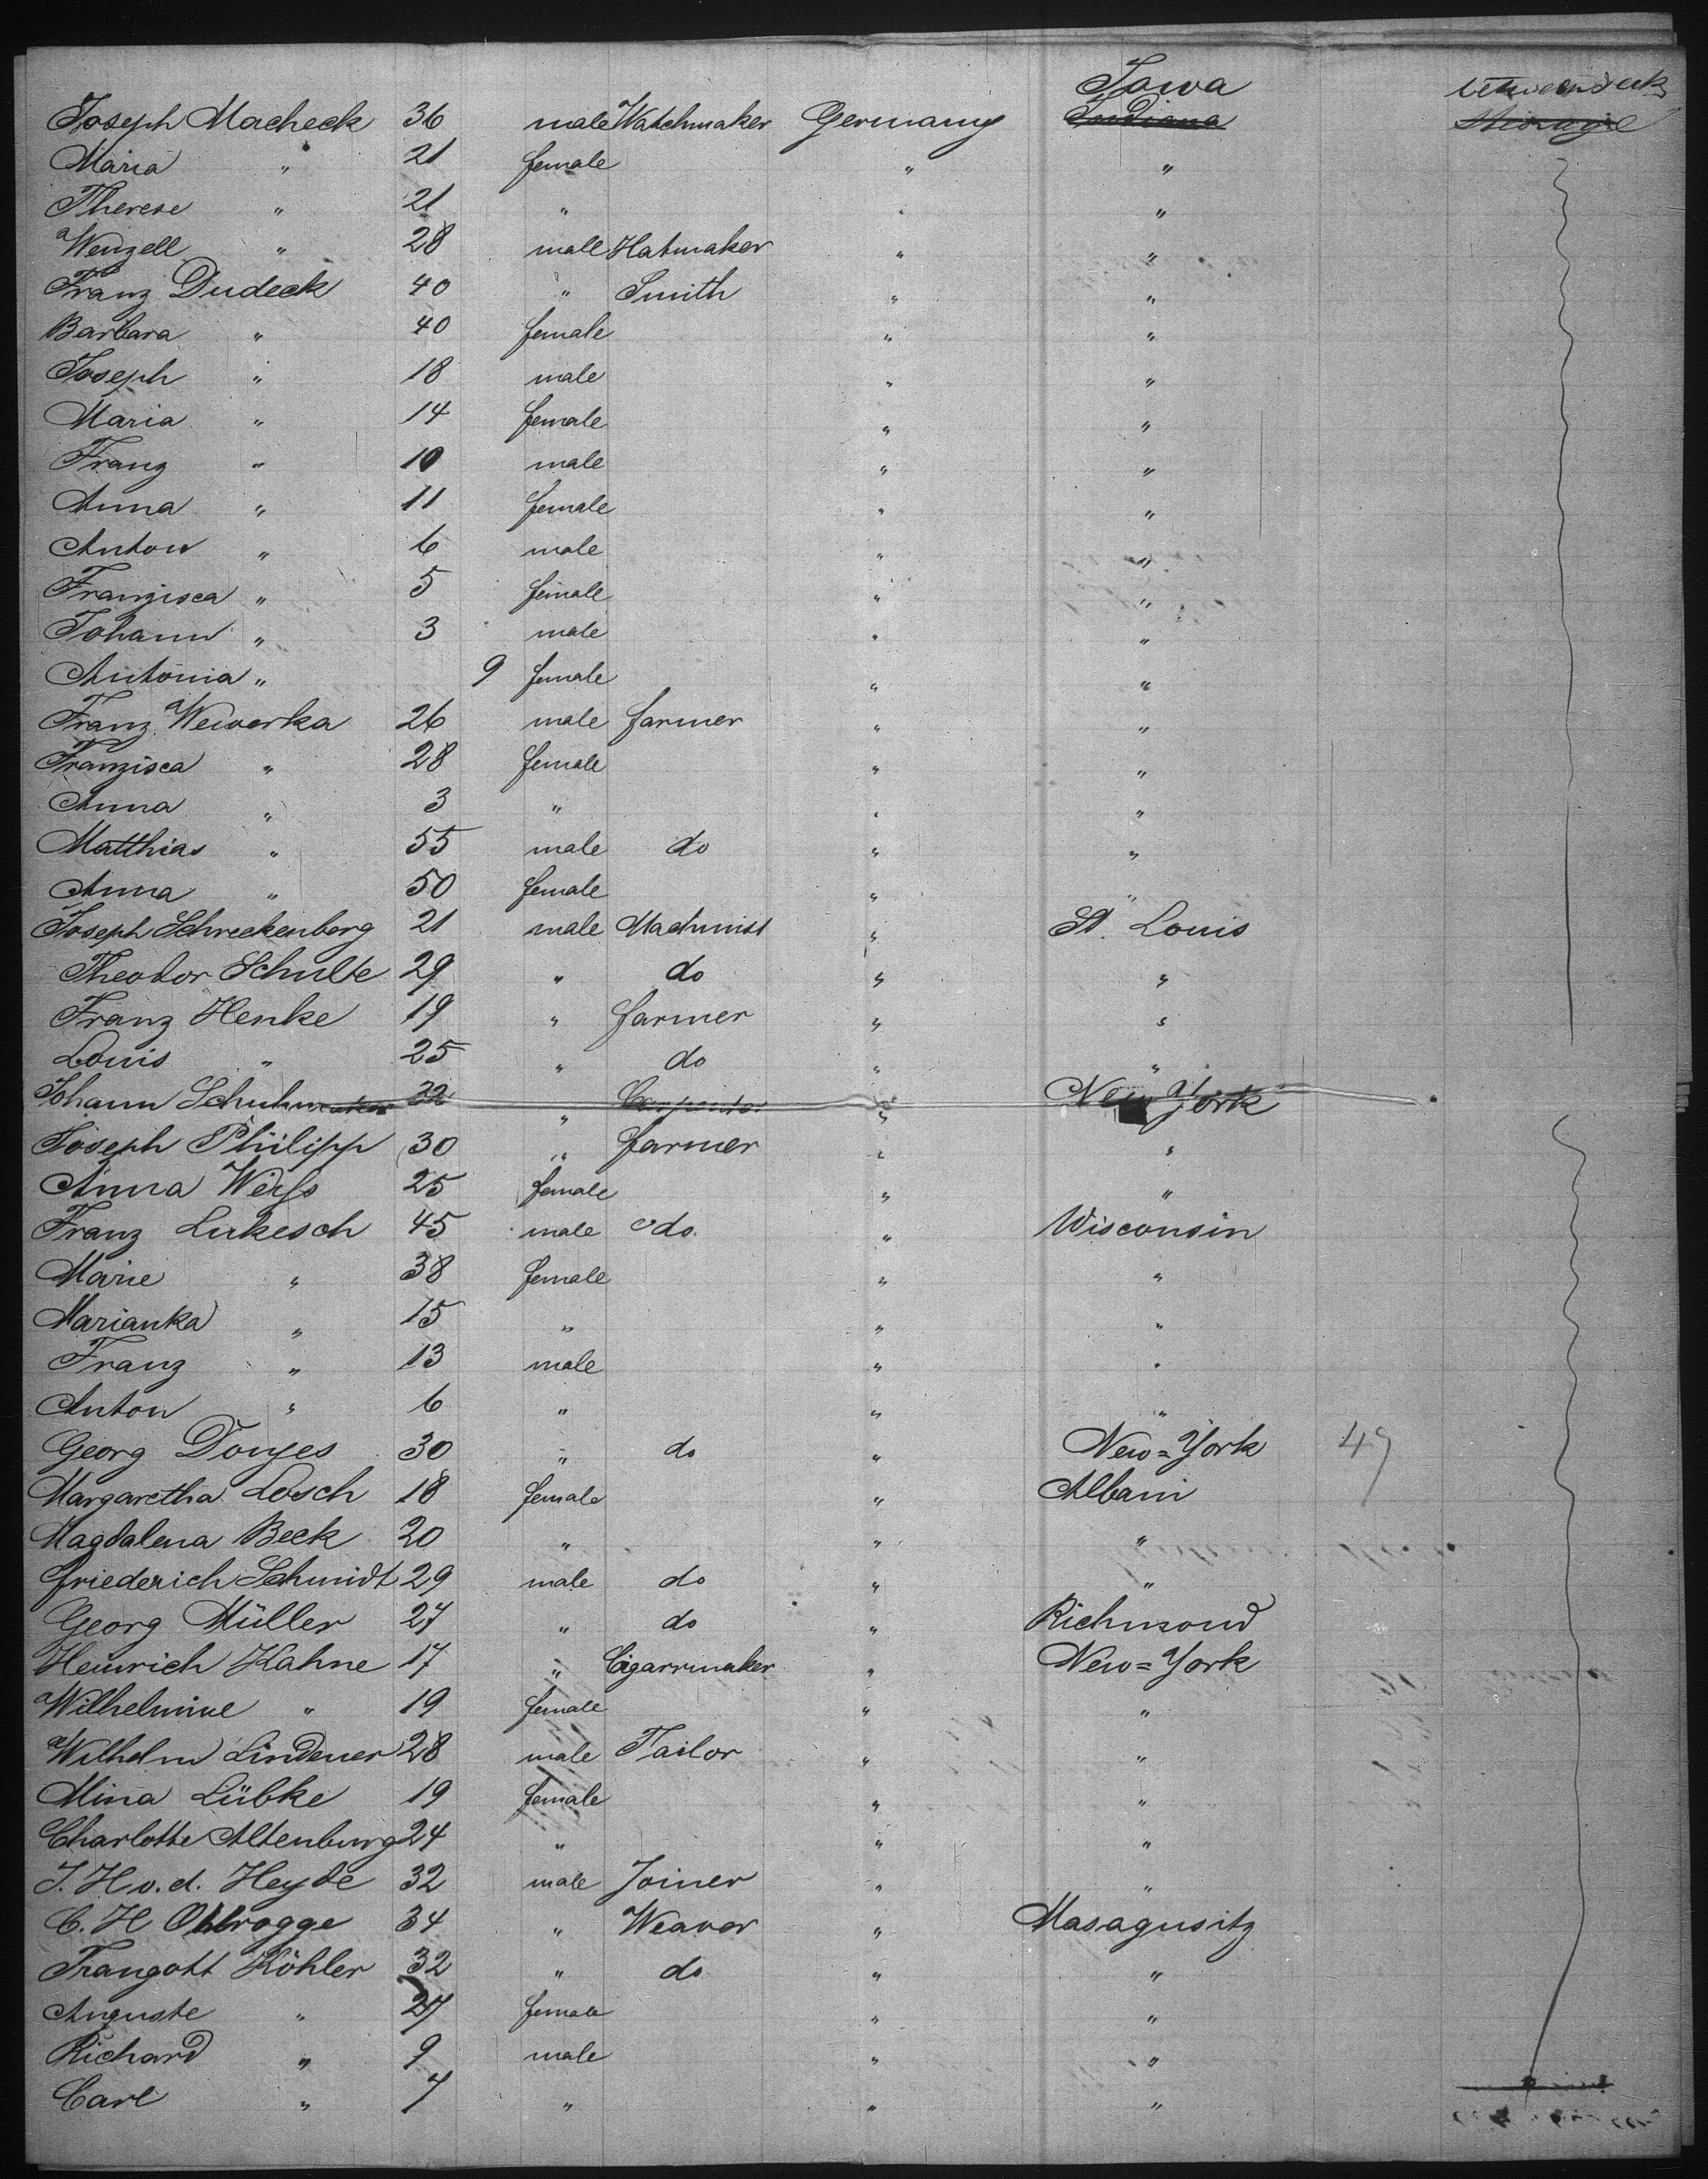 Iowa betweendeck
Joseph Macheck 36 male Watchmaker Germany Indiana Steerage
Maria " 21 female " "
Therese " 21 " " "
Wenzell " 28 male Hatmaker " "
Franz Dudeck 40 " Smith " "
Barbara " 40 female " "
Joseph " 18 male " "
Maria " 14 female " "
Franz " 10 male " "
Anna " 11 female " "
Anton " 6 male " "
Franzisca " 5 female " "
Johann " 3 male " "
Antonia " 9 female " "
Franz Wewerka 26 male farmer " "
Franzisca " 28 female " "
Anna " 3 " " "
Matthias " 55 male do " "
Anna " 50 female " "
Joseph Schreckenberg 21 male Machinist " St. Louis
Theodor Schulte 29 " do " "
Franz Henke 19 " farmer " "
Louis " 25 " do " "
Johann 22 " Carpenter " New York
Joseph Philipp 30 " farmer " "
Anna Weiss 25 female " "
Franz Lukesch 45 male do. " Wisconsin
Marie " 38 female " "
Marianka " 15 " " "
Franz " 13 male " "
Anton " 6 " " "
Georg Donges 30 " do " New=York 49
Margaretha Losch 18 female " Albani
Magdalena Beck 20 " " "
Friederich Schmidt 29 male do " "
Georg Müller 27 " do " Richmond
Heinrich Kahne 17 " Cigarrmaker " New=York
Wilhelmine " 19 female " "
Wilhelm Lindener 28 male Tailor " "
Mina Lübke 19 female " "
Charlotte Altenburg 24 " " "
J. H v. d. Heyde 32 male Joiner " "
C. H Ohlrogge 34 " Weaver " Masagusitz
Traugott Köhler 32 " do " "
Auguste " 27 female " "
Richard " 9 male " "
Carl " 7 " " "